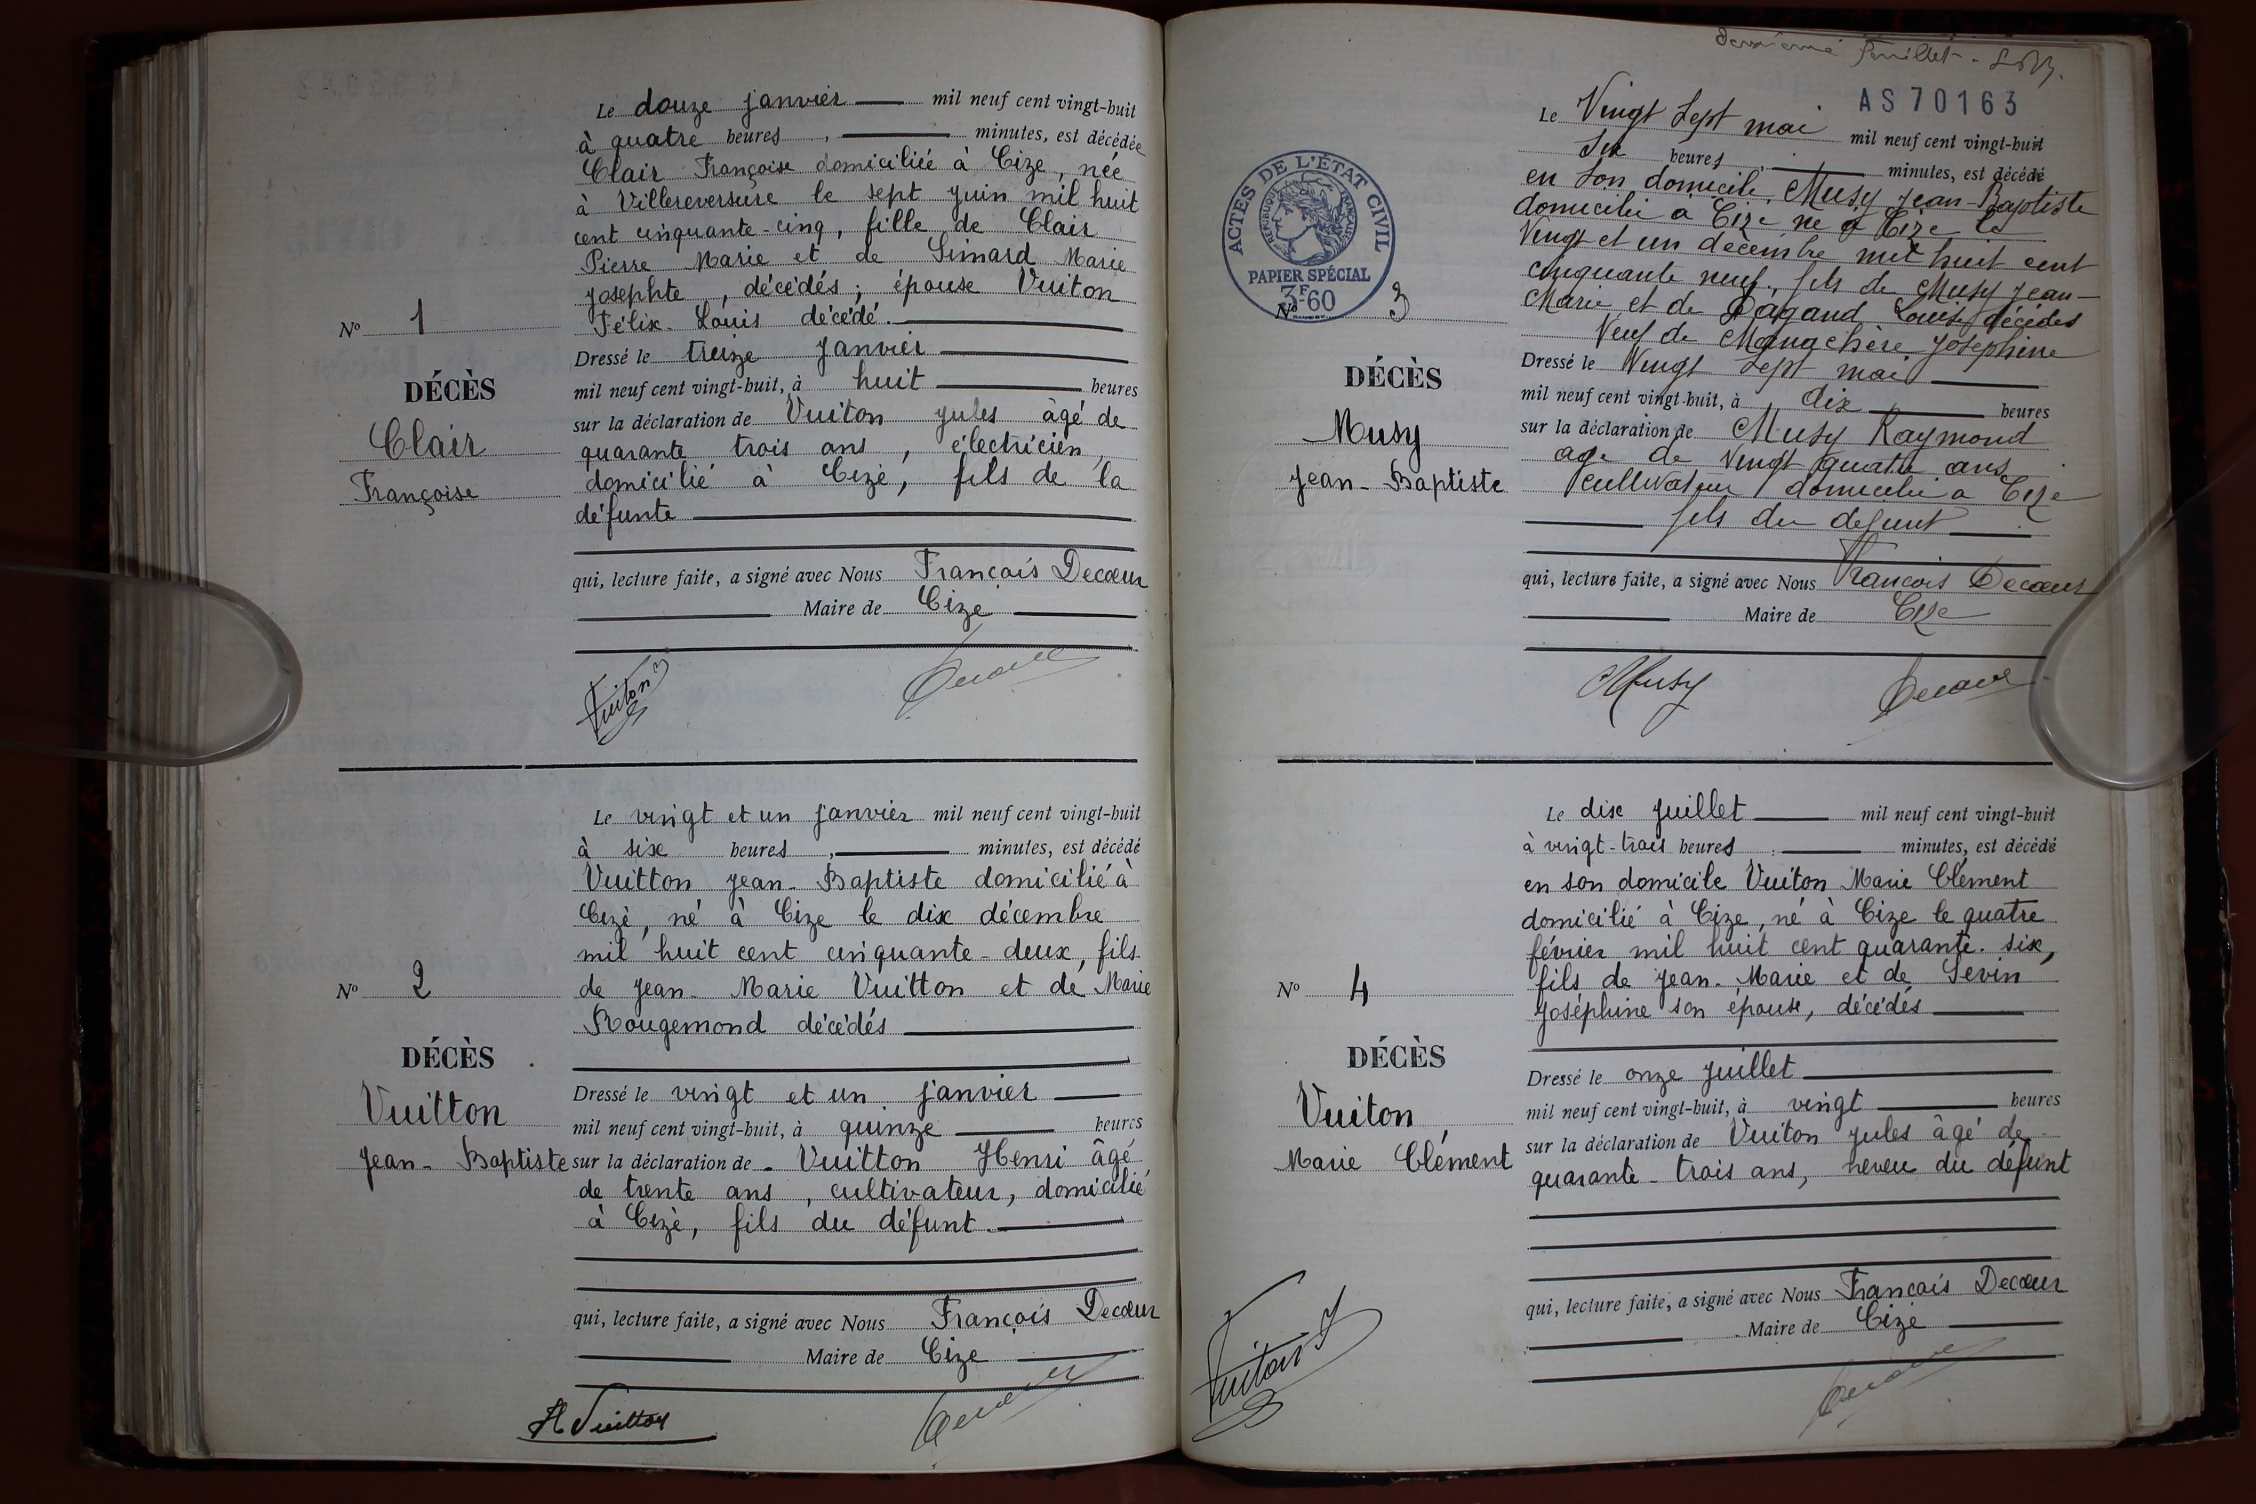 Le douze janvier mil neuf cent vingt-huit
à quatre heures, minutes, est décédée
Clair Françoise domiciliée à Cize, née
à Villereversure le sept juin mil huit
cent cinquante-cinq, fille de Clair
Pierre Marie et de Simard Marie
Josephte, décédés; épouse Vuiton
Félix-Louis décédé.
Nº 1
DÉCÈS
Clair
Françoise
Dressé le treize janvier
mil neuf cent vingt-huit, à huit heures
sur la déclaration de Vuiton Jules âgé de
quarante trois ans, électricien,
domicilié à Cize, fils de la
défunte
qui, lecture faite, a signé avec Nous François Decœur
Maire de Cize
Vuiton
Le vingt et un janvier mil neuf cent vingt-huit
à six heures, minutes, est décédé
Vuitton Jean-Baptiste domicilié à
Cize, né à Cize le dix décembre
mil huit cent cinquante-deux, fils
de Jean-Marie Vuitton et de Marie
Rougemond décédés
Nº 2
DÉCÈS
Vuitton
Jean-Baptiste
Dressé le vingt et un janvier
mil neuf cent vingt-huit, à quinze heures
sur la déclaration de Vuitton Henri âgé
de trente ans, cultivateur, domicilié
à Cize, fils du défunt.
qui, lecture faite, a signé avec Nous François Decœur
Maire de Cize
H Vuitton
feuillet
AS70163
ACTES DE L'ÉTAT CIVIL
RÉPUBLIQUE FRANÇAISE
PAPIER SPÉCIAL
3F60
Le Vingt Sept mai mil neuf cent vingt-huit
Six heures, minutes, est décédé
en son domicile, Musy Jean-Baptiste
domicilié à Cize né à Cize le
Vingt et un décembre mil huit cent
cinquante neuf, fils de Musy Jean-
Marie et de Pagand Louise décédés
Veuf de Josephine
Nº 3
DÉCÈS
Musy
Jean-Baptiste
Dressé le Vingt Sept mai
mil neuf cent vingt-huit, à dix heures
sur la déclaration de Musy Raymond
age de Vingt quatre ans
cultivateur domicilié a Cize
fils du defunt
qui, lecture faite, a signé avec Nous Francois Decœur
Maire de Cize
Musy
Le dix juillet mil neuf cent vingt-huit
à vingt-trois heures, minutes, est décédé
en son domicile Vuiton Marie Clément
domicilié à Cize, né à Cize le quatre
février mil huit cent quarante-six,
fils de Jean-Marie et de Sevin
Joséphine son épouse, décédés
Nº 4
DÉCÈS
Vuiton
Marie Clément
Dressé le onze juillet
mil neuf cent vingt-huit, à vingt heures
sur la déclaration de Vuiton Jules âgé de
quarante-trois ans, neveu du défunt
qui, lecture faite, a signé avec Nous Francois Decœur
Maire de Cize
Vuiton J